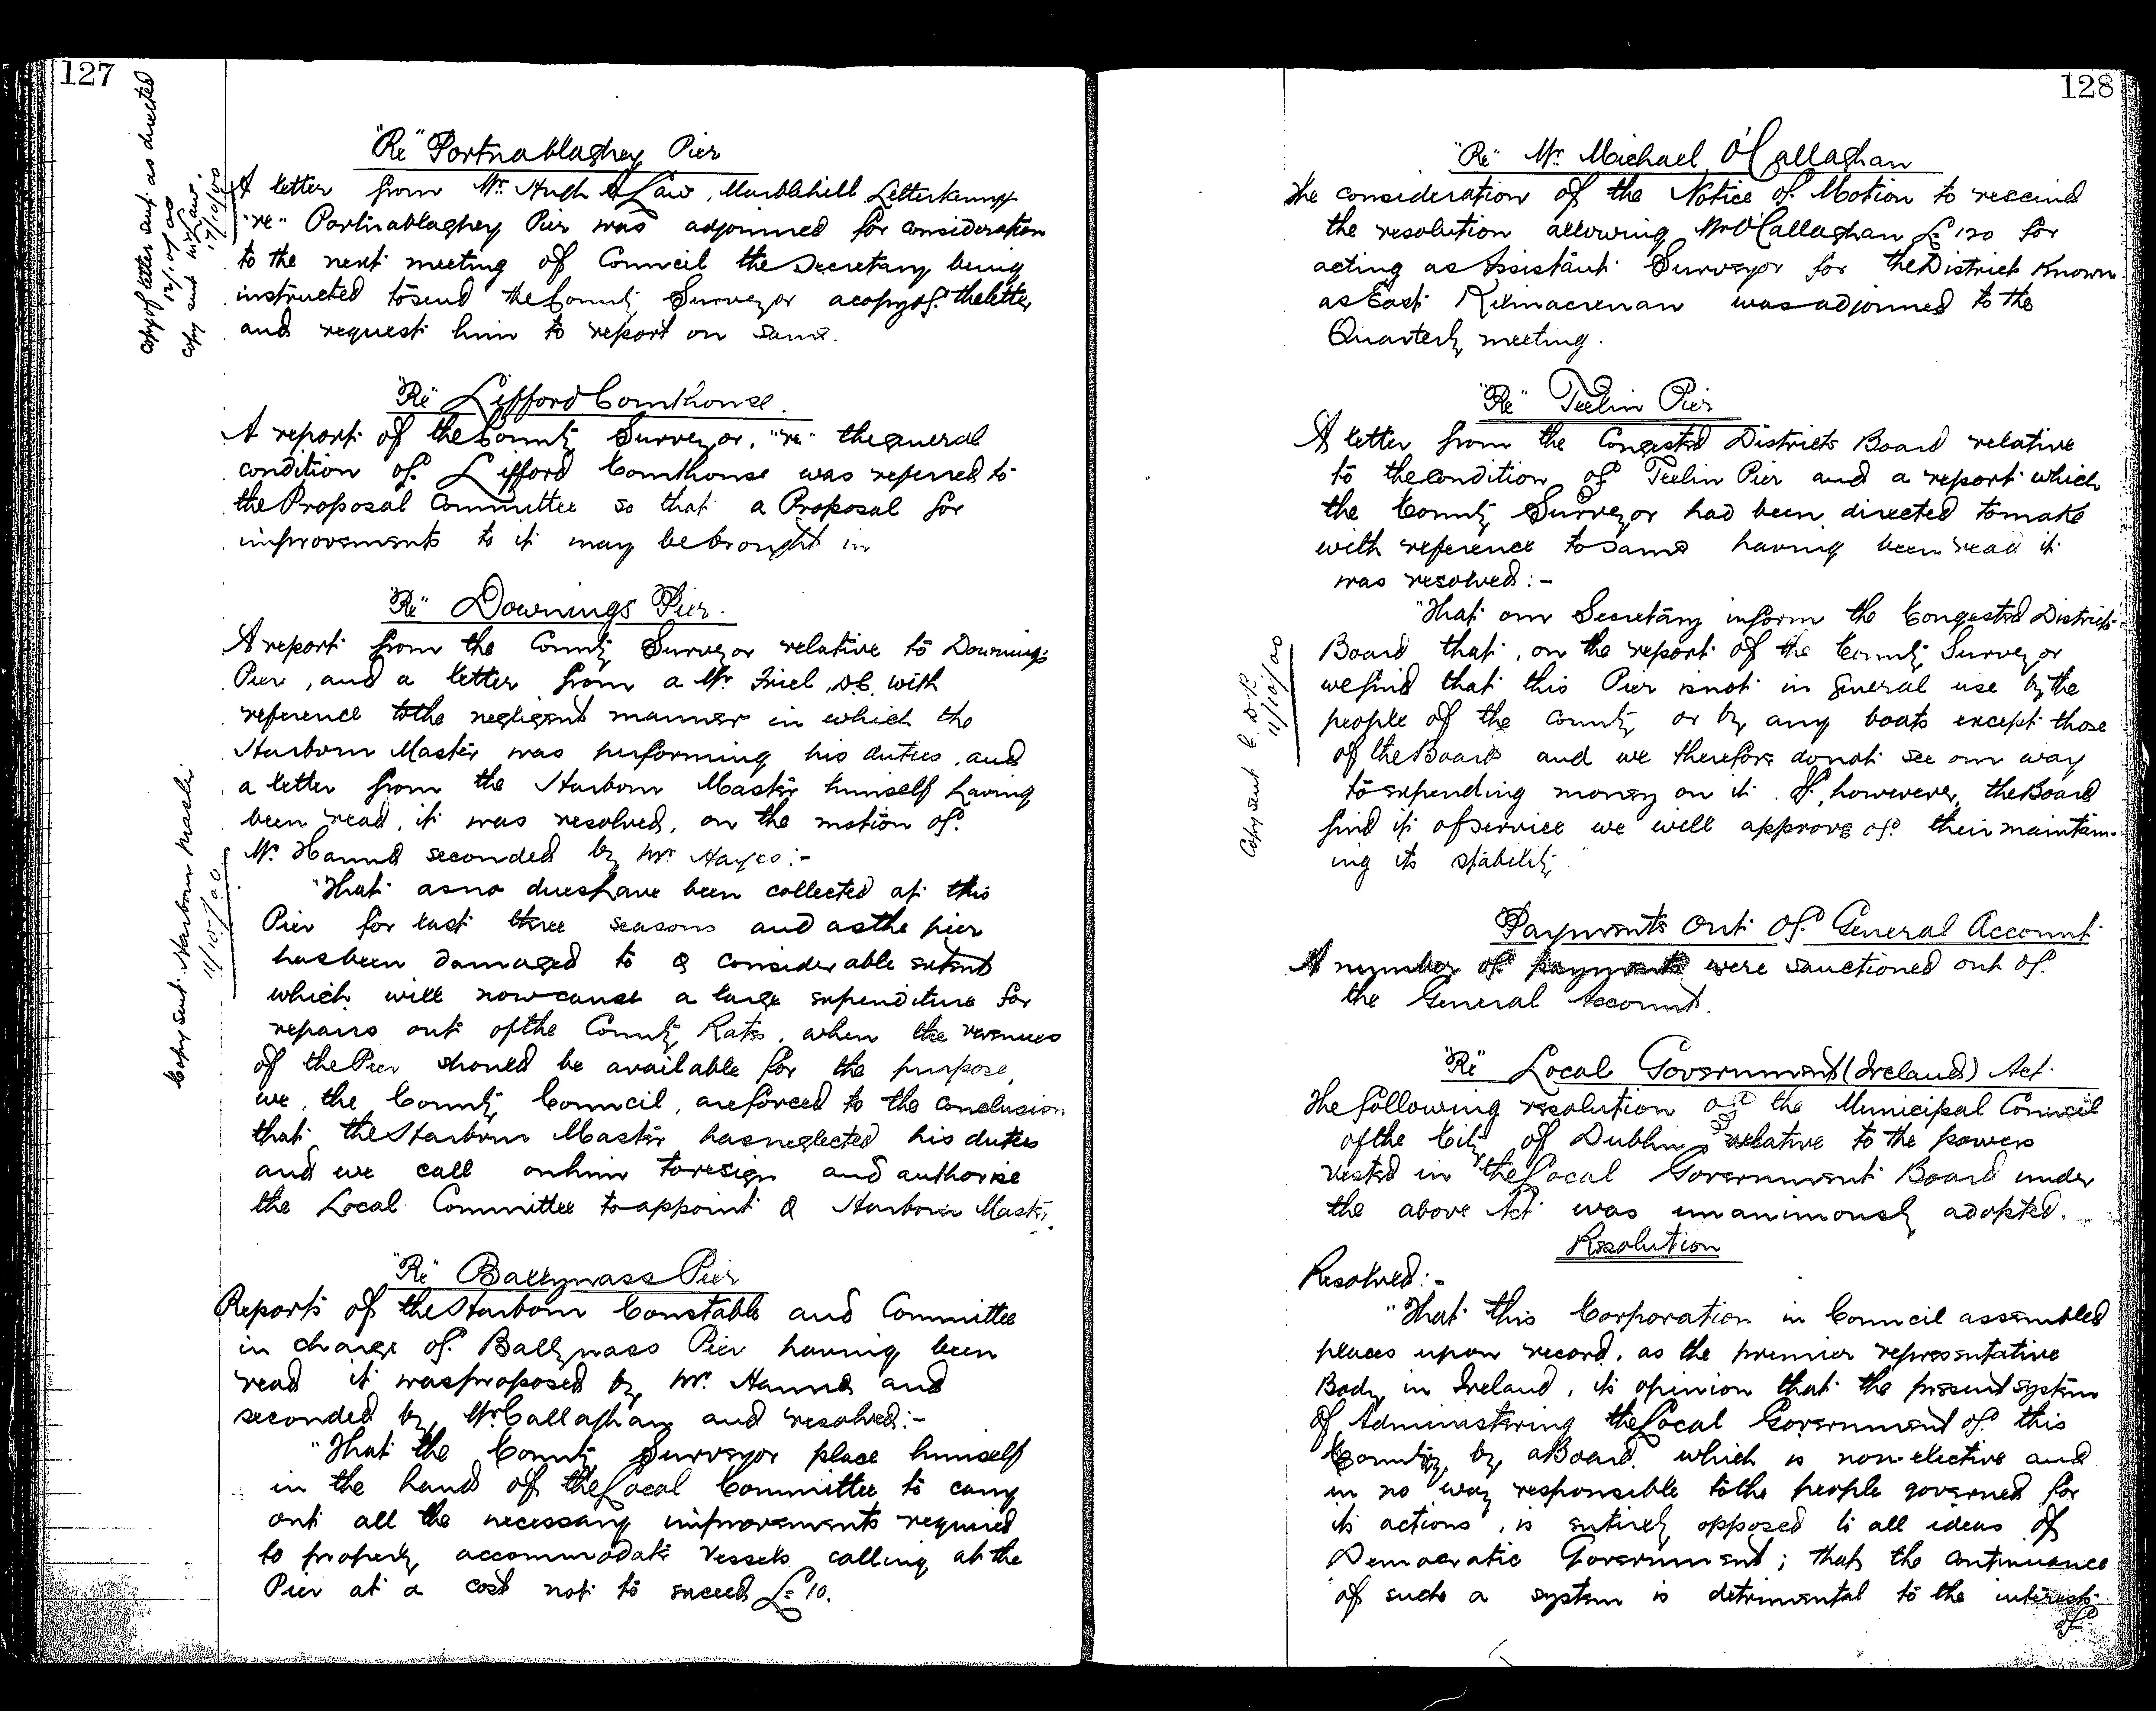 127
Copy of letter sent as directed
12/10/00
Copy sent Mr Law.
17/10/00
"Re" Portnablaghey Pier
A letter from Mr. Hugh A Law, Marblehill Letterkenny
"re" Portnablaghey Pier was adjourned for consideration
to the next meeting of Council the Secretary being
instructed to send the County Surveyor a copy of the letter
and request him to report on same.
"Re" Lifford Courthouse.
A report of the County Surveyor, "re" the general
condition of Lifford Courthouse was referred to
the Proposal Committee so that a Proposal for
improvements to it may be brought in
"Re" Downings Pier.
A report from the County Surveyor relative to Downings
Pier, and a letter from a Mr. Friel, D.C. with
reference to the negligent manner in which the
Harbour Master was performing his duties, and
a letter from the Harbour Master himself having
been read, it was resolved, on the motion of
Mr. Hanna seconded by Mr. Hayes:-
Copy sent Harbour Master
11/10/00
"That as no dues have been collected at this
Pier for last three seasons and as the pier
has been damaged to a considerable extent
which will now cause a large expenditure for
repairs out of the County Rates, when the revenues
of the Pier should be available for the purpose,
we, the County Council, are forced to the conclusion
that the Harbour Master has neglected his duties
and we call on him to resign and authorise
the Local Committee to appoint a Harbour Master.
"Re" Ballyness Pier
Reports of the Harbour Constable and Committee
in charge of Ballyness Pier having been
read it was proposed by Mr. Hanna and
seconded by Mr Callaghan and resolved:-
"That the County Surveyor place himself
in the hands of the Local Committee to carry
out all the necessary improvements required
to properly accommodate vessels calling at the
Pier at a cost not to exceed £10.
128
"Re" Mr. Michael O'Callaghan
The consideration of the Notice of Motion to rescind
the resolution allowing Mr O'Callaghan £120 for
acting as Assistant Surveyor for the District known
as East Kilmacrenan was adjourned to the
Quarterly meeting.
"Re" Teelin Pier
A letter from the Congested Districts Board relative
to the condition of Teelin Pier and a report which
the County Surveyor had been directed to make
with reference to same having been read it
was resolved:-
Copy sent C.D.B.
11/10/00
"That our Secretary inform the Congested Districts
Board that, on the report of the County Surveyor
we find that this Pier is not in general use by the
people of the County or by any boats except those
of the Board and we therefore do not see our way
to expending money on it. If, however, the Board
find it of service we will approve of their maintain-
ing its stability
Payments out of General Account
A number of payments were sanctioned out of
the General Account.
"Re" Local Government (Ireland) Act.
The following resolution of the Municipal Council
of the City of Dublin relative to the powers
vested in the Local Government Board under
the above Act was unanimously adopted.
Resolution
Resolved:-
"That this Corporation in Council assembled
places upon record, as the premier representative
Body in Ireland, its opinion that the present system
of Administering the Local Government of this
Country, by a Board which is non-elective and
in no way responsible to the people governed for
its actions, is entirely opposed to all ideas of
Democratic Government; that the continuance
of such a system is detrimental to the interests
of